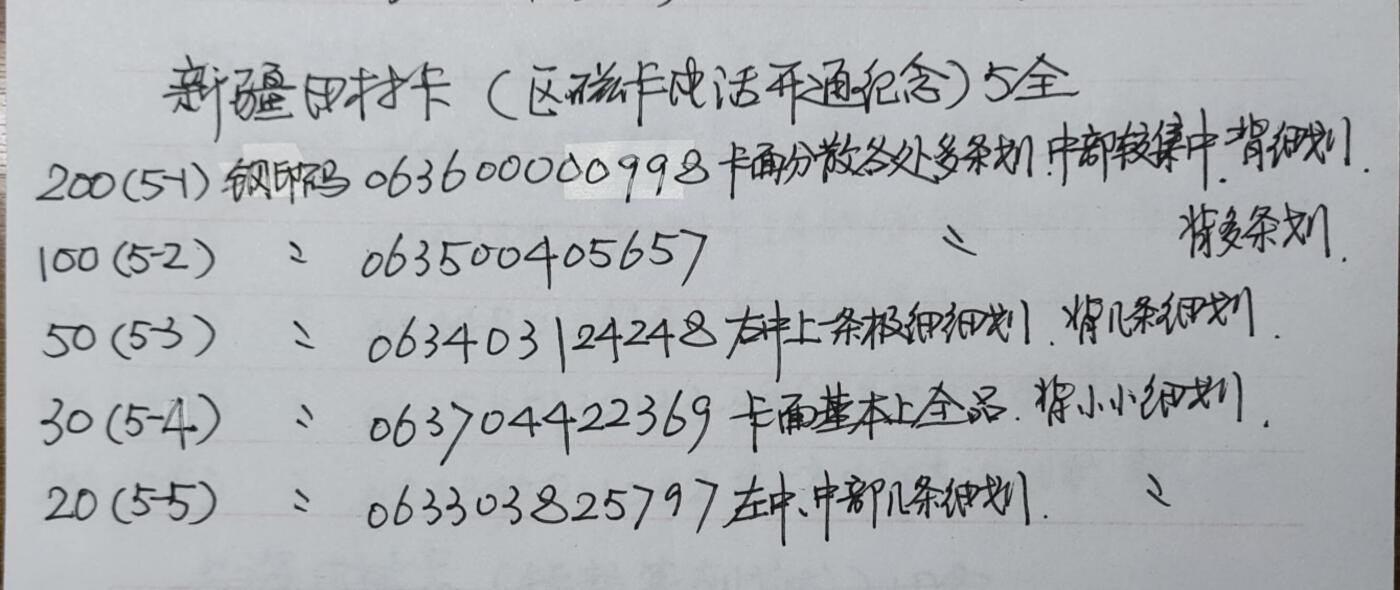 新疆田村卡（区磁卡电话开通纪念）5全
200(5-1) 钢印码 063600000998 卡面分散各处多条划.中部较集中.背细划.
100(5-2) 〃 063500405657 〃 背多条划.
50(5-3) 〃 063403124248 右中上一条极细细划.背几条细划.
30(5-4) 〃 063704422369 卡面基本上全品.背小小细划.
20(5-5) 〃 063303825797 左中、中部几条细划. 〃